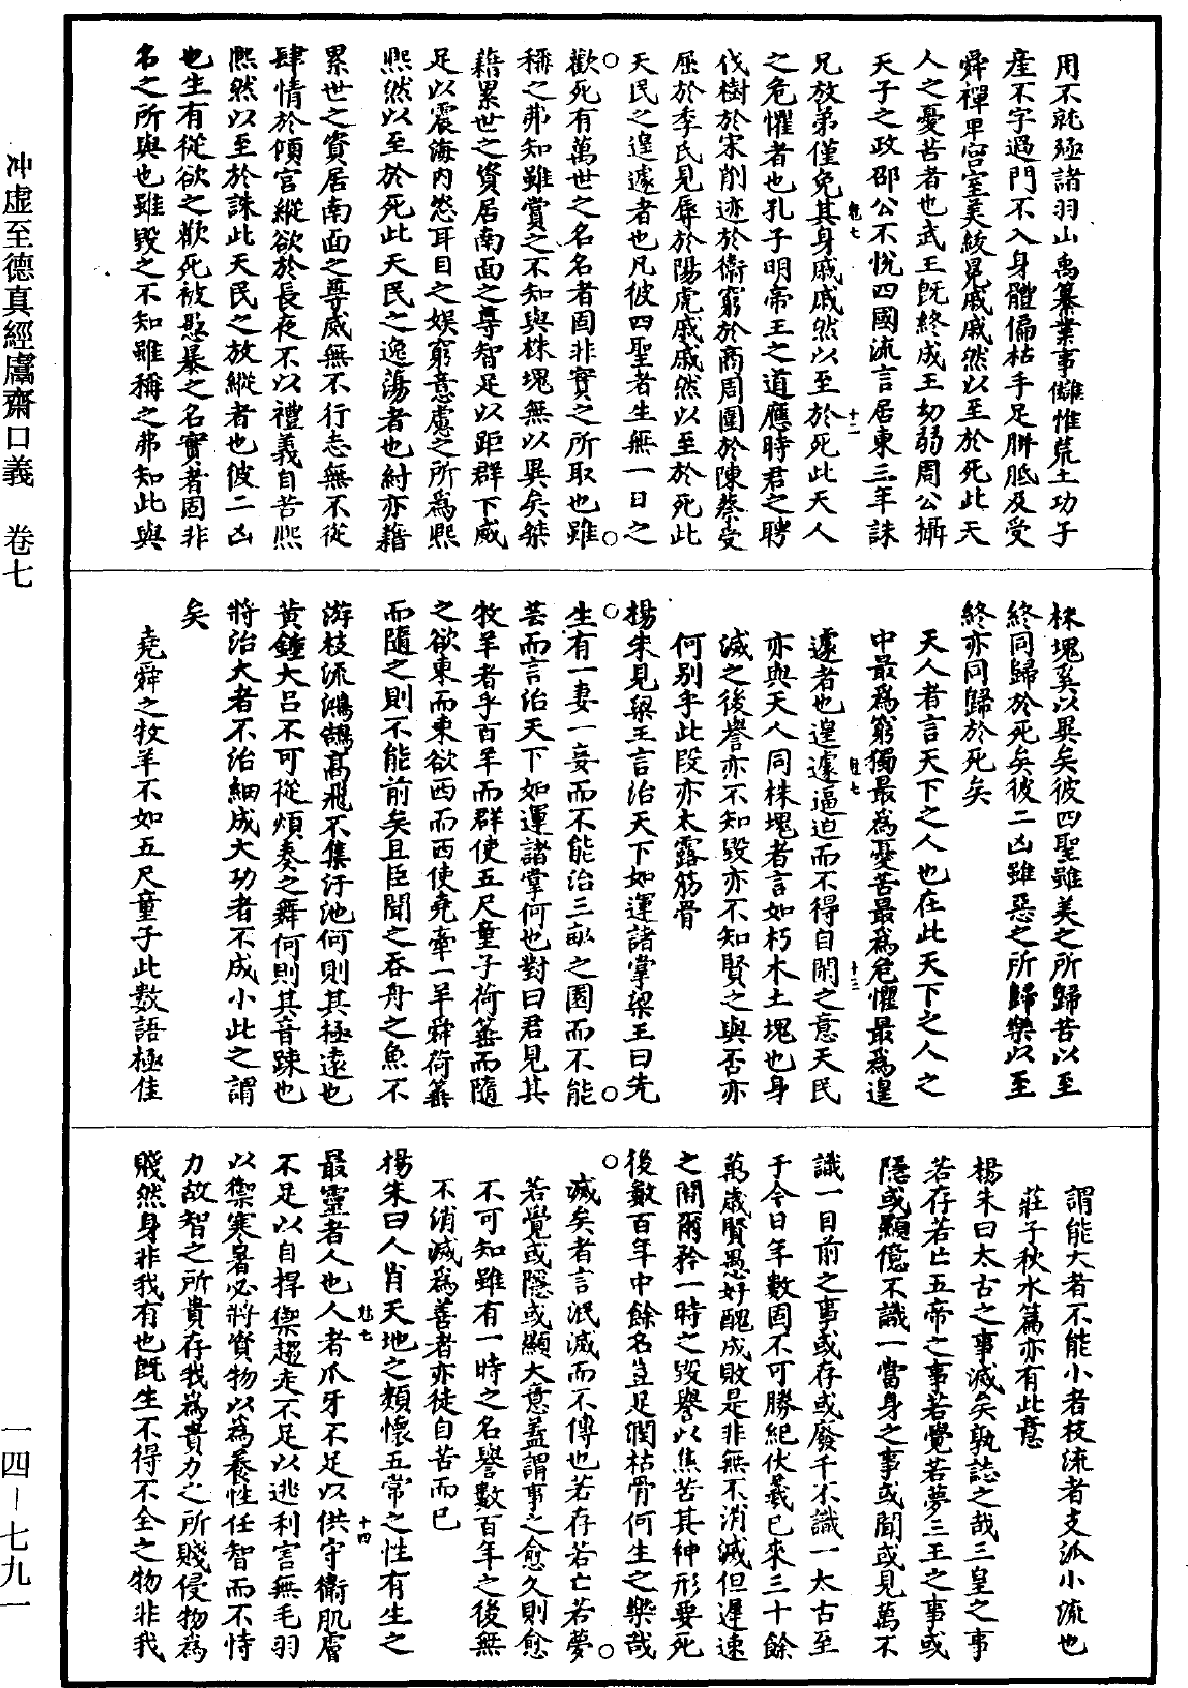 用不就殛諸羽山禹纂業事讎惟荒土功子
產不字過門不入身體偏枯手足胼胝及受
舜禪卑宮室美紱冕戚戚然以至於死此天
人之憂苦者也武王既終成王幼弱周公攝
天子之政邵公不悅四國流言居東三年誅
兄放弟僅免其身戚戚然以至於死此天人
之危懼者也孔子明帝王之道應時君之聘
伐樹於宋削迹於衛窮於商周圍於陳蔡受
屈於季氏見辱於陽虎戚戚然以至於死此
天民之遑遽者也凡彼四聖者生無一日之
歡死有萬世之名名者固非實之所取也雖
稱之弗知雖賞之不知與株塊無以異矣桀
藉累世之資居南面之尊智足以距群下威
足以震海內恣耳目之娛窮意慮之所為熙
熙然以至於死此天民之逸蕩者也紂亦藉
累世之資居南面之尊威無不行志無不從
肆情於傾宮縱欲於長夜不以禮義自苦熙
熙然以至於誅此天民之放縱者也彼二凶
也生有從欲之歡死被愚暴之名實者固非
名之所與也雖毀之不知雖稱之弗知此與
株塊奚以異矣彼四聖雖美之所歸苦以至
終同歸於死矣彼二凶雖惡之所歸樂以至
終亦同歸於死矣
天人者言天下之人也在此天下之人之
中最為窮獨最為憂苦最為危懼最為遑
遽者也遑遽逼迫而不得自閑之意天民
亦與天人同株塊者言如朽木土塊也身
滅之後譽亦不知毀亦不知賢之與否亦
何別乎此段亦太露筋骨
楊朱見梁王言治天下如運諸掌梁王曰先
生有一妻一妾而不能治三畝之園而不能
芸而言治天下如運諸掌何也對曰君見其
牧羊者乎百羊而群使五尺童子荷箠而隨
之欲東而東欲西而西使堯牽一羊舜荷箠
而隨之則不能前矣且臣聞之吞舟之魚不
游枝流鴻鵠高飛不集汙池何則其極遠也
黃鍾大呂不可從煩奏之舞何則其音疎也
將治大者不治細成大功者不成小此之謂
矣
堯舜之牧羊不如五尺童子此數語極佳
謂能大者不能小者枝流者支派小流也
莊子秋水篇亦有此意
楊朱曰太古之事滅矣孰誌之哉三皇之事
若存若亡五帝之事若覺若夢三王之事或
隱或顯億不識一當身之事或聞或見萬不
識一目前之事或存或廢千不識一太古至
于今日年數固不可勝紀伏羲已來三十餘
萬歲賢愚好醜成敗是非無不消滅但遲速
之間爾矜一時之毀譽以焦苦其神形要死
後數百年中餘名豈足潤枯骨何生之樂哉
滅矣者言泯滅而不傳也若存若亡若夢
若覺或隱或顯大意蓋謂事之愈久則愈
不可知雖有一時之名譽數百年之後無
不消滅為善者亦徒自苦而已
楊朱曰人肖天地之類懷五常之性有生之
最靈者人也人者爪牙不足以供守衛肌膚
不足以自捍禦趨走不足以逃利害無毛羽
以禦寒暑必將資物以為養性任智而不恃
力故智之所貴存我為貴力之所賤侵物為
賤然身非我有也既生不得不全之物非我
冲虛至德真經鬳齋口義 卷七
一四－七九一